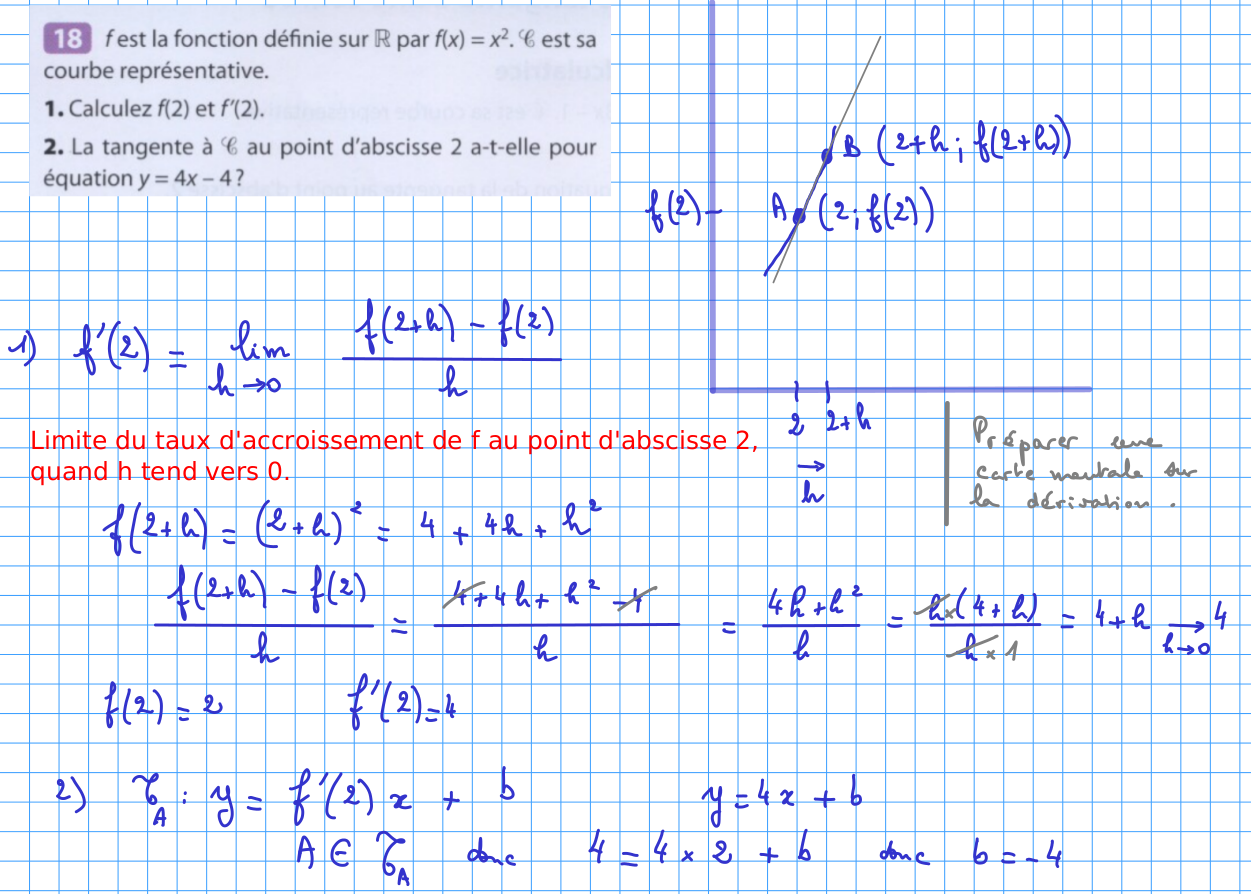 18 f est la fonction définie sur ℝ par f(x) = x². 𝒞 est sa
courbe représentative.
1. Calculez f(2) et f′(2).
2. La tangente à 𝒞 au point d'abscisse 2 a-t-elle pour
équation y = 4x – 4 ?
B (2+h ; f(2+h))
f(2) –
A (2 ; f(2))
2 2+h
→
h
Préparer une
carte mentale sur
la dérivation.
1) f′(2) = lim h→0 (f(2+h) – f(2)) / h
Limite du taux d'accroissement de f au point d'abscisse 2,
quand h tend vers 0.
f(2+h) = (2+h)² = 4 + 4h + h²
(f(2+h) – f(2)) / h = (4 + 4h + h² – 4) / h = (4h + h²) / h = h×(4+h) / h×1 = 4+h → 4 h→0
f(2) = 2 f′(2) = 4
2) 𝒯_A : y = f′(2) x + b y = 4x + b
A ∈ 𝒯_A donc 4 = 4 × 2 + b donc b = -4